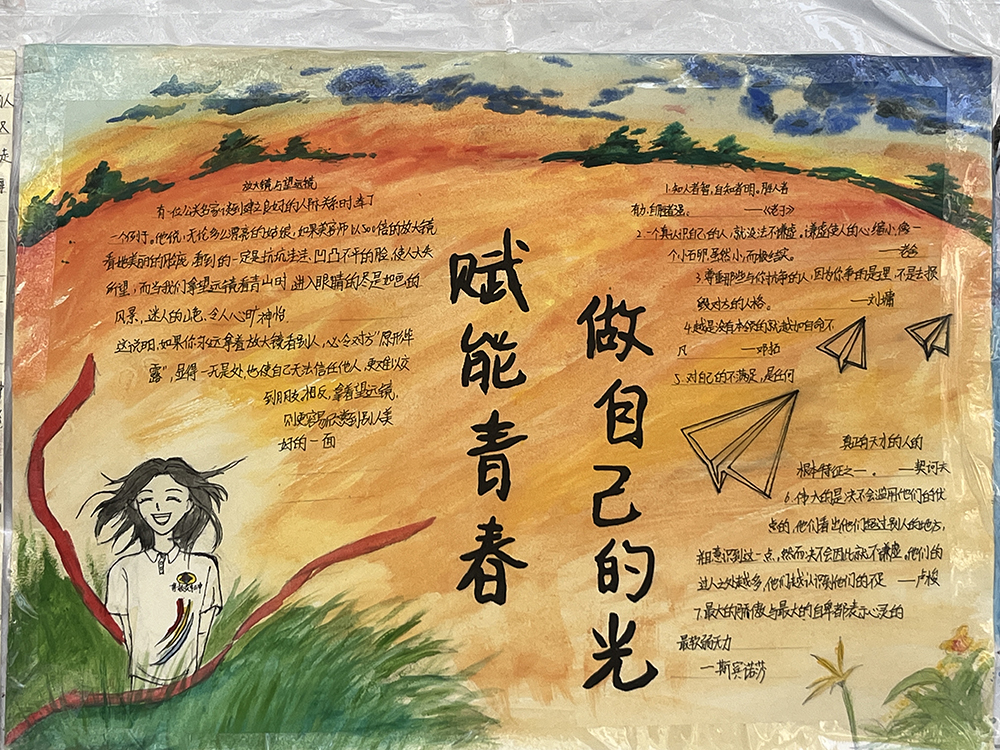 赋能青春
做自己的光
放大镜与望远镜
有一位公关名家谈到建立良好的人际关系时，举了
一个例子。他说，无论多么漂亮的姑娘，如果美容师以500倍的放大镜
看她美丽的脸庞，看到的一定是坑坑洼洼、凹凸不平的脸，使人大失
所望，而当我们拿望远镜看青山时，进入眼睛的尽是如画的
风景，迷人的山色，令人心旷神怡
这说明，如果你永远拿着放大镜看别人，必令对方“原形毕
露”，显得一无是处，也使自己无法信任他人，更难以交
到朋友，相反，拿着望远镜，
则更容易欣赏到别人美
好的一面
1.知人者智，自知者明。胜人者
有力，自胜者强。——《老子》
2.一个真认识自己的人，就没法不谦虚。谦虚使人的心缩小，像一
个小石卵，虽然小，而极结实。——老舍
3.尊重那些与你抗争的人，因为你争的是理，不是去损
毁对方的人格。——刘墉
4.越是没有本领的就越加自命不
凡——邓拓
5.对自己的不满足，是任何
真正有天才的人的
根本特征之一。——契诃夫
6.伟大的是决不会滥用他们的优
点的，他们看出他们超过别人的地方，
并意识到这一点，然而决不会因此就不谦虚。他们的
过人之处越多，他们越认识到他们的不足——卢梭
7.最大的骄傲与最大的自卑都表示心灵的
最软弱无力
—斯宾诺莎